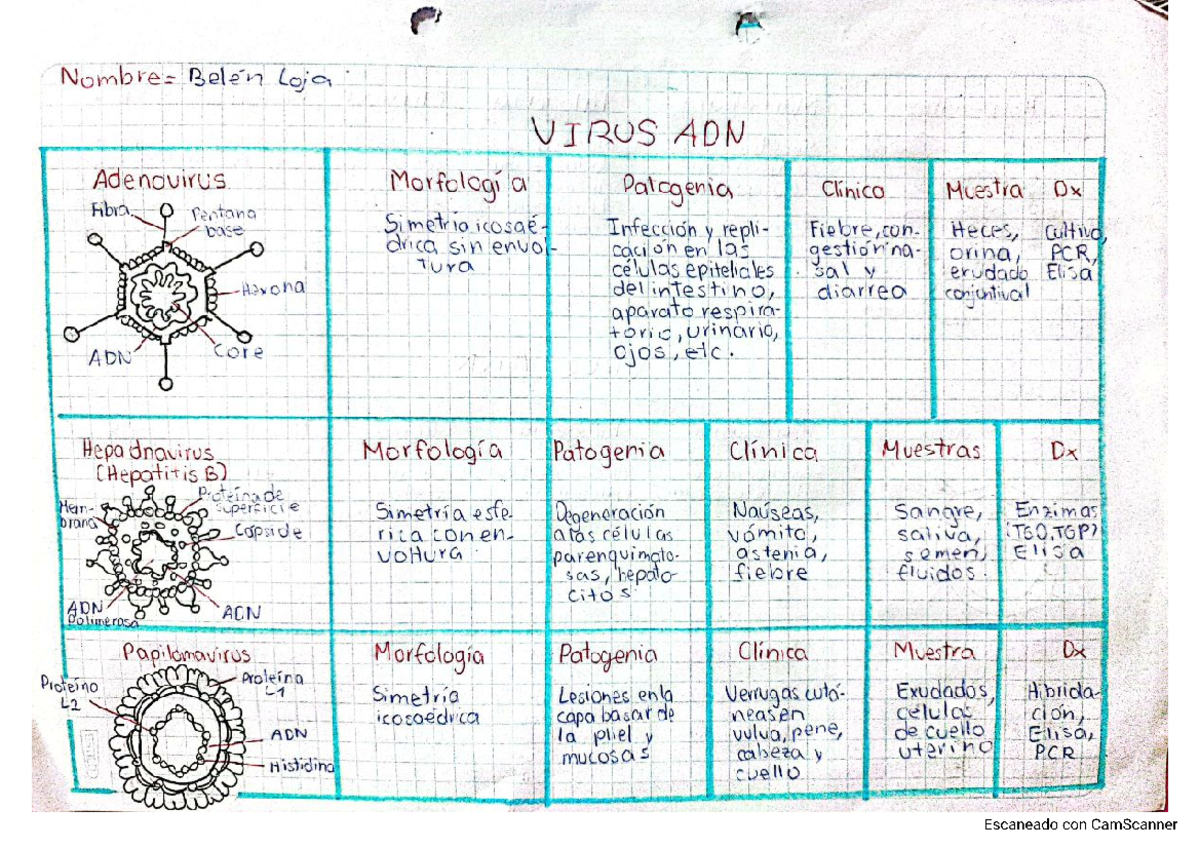 Nombre= Belén Loja
VIRUS ADN
Adenovirus
Fibra
Pentona
base
Hexona
Core
ADN
Morfología
Simetría icosaé-
drica sin envol-
tura
Patogenia
Infección y repli-
cación en las
células epiteliales
del intestino,
aparato respira-
torio, urinario,
ojos, etc.
Clínico
Fiebre, con-
gestión na-
sal y
diarrea
Muestra
Heces,
orina,
erudado
conjuntival
Dx
Cultivo,
PCR,
Elisa
Hepadnavirus
(Hepatitis B)
Mem-
brana
Proteína de
superficie
Capside
ADN
Polimerasa
ADN
Morfología
Simetría esfe
rica con en-
voltura
Patogenia
Degeneración
a las células
parenquimato-
sas, hepato-
citos
Clínica
Naúseas,
vómito,
astenia,
fiebre
Muestras
Sangre,
saliva,
semen,
fluidos.
Dx
Enzimas
(TGO, TGP)
Elisa
Papilomavirus
Proteína
L2
Proteína
L1
ADN
Histidina
Morfología
Simetría
icosaédrica
Patogenia
Lesiones en la
capa basar de
la pliel y
mucosas
Clínica
Verrugas cutá-
neas en
vulva, pene,
cabeza y
cuello
Muestra
Exudados,
células
de cuello
uterino
Dx
Hibrida-
ción,
Elisa,
PCR
Escaneado con CamScanner